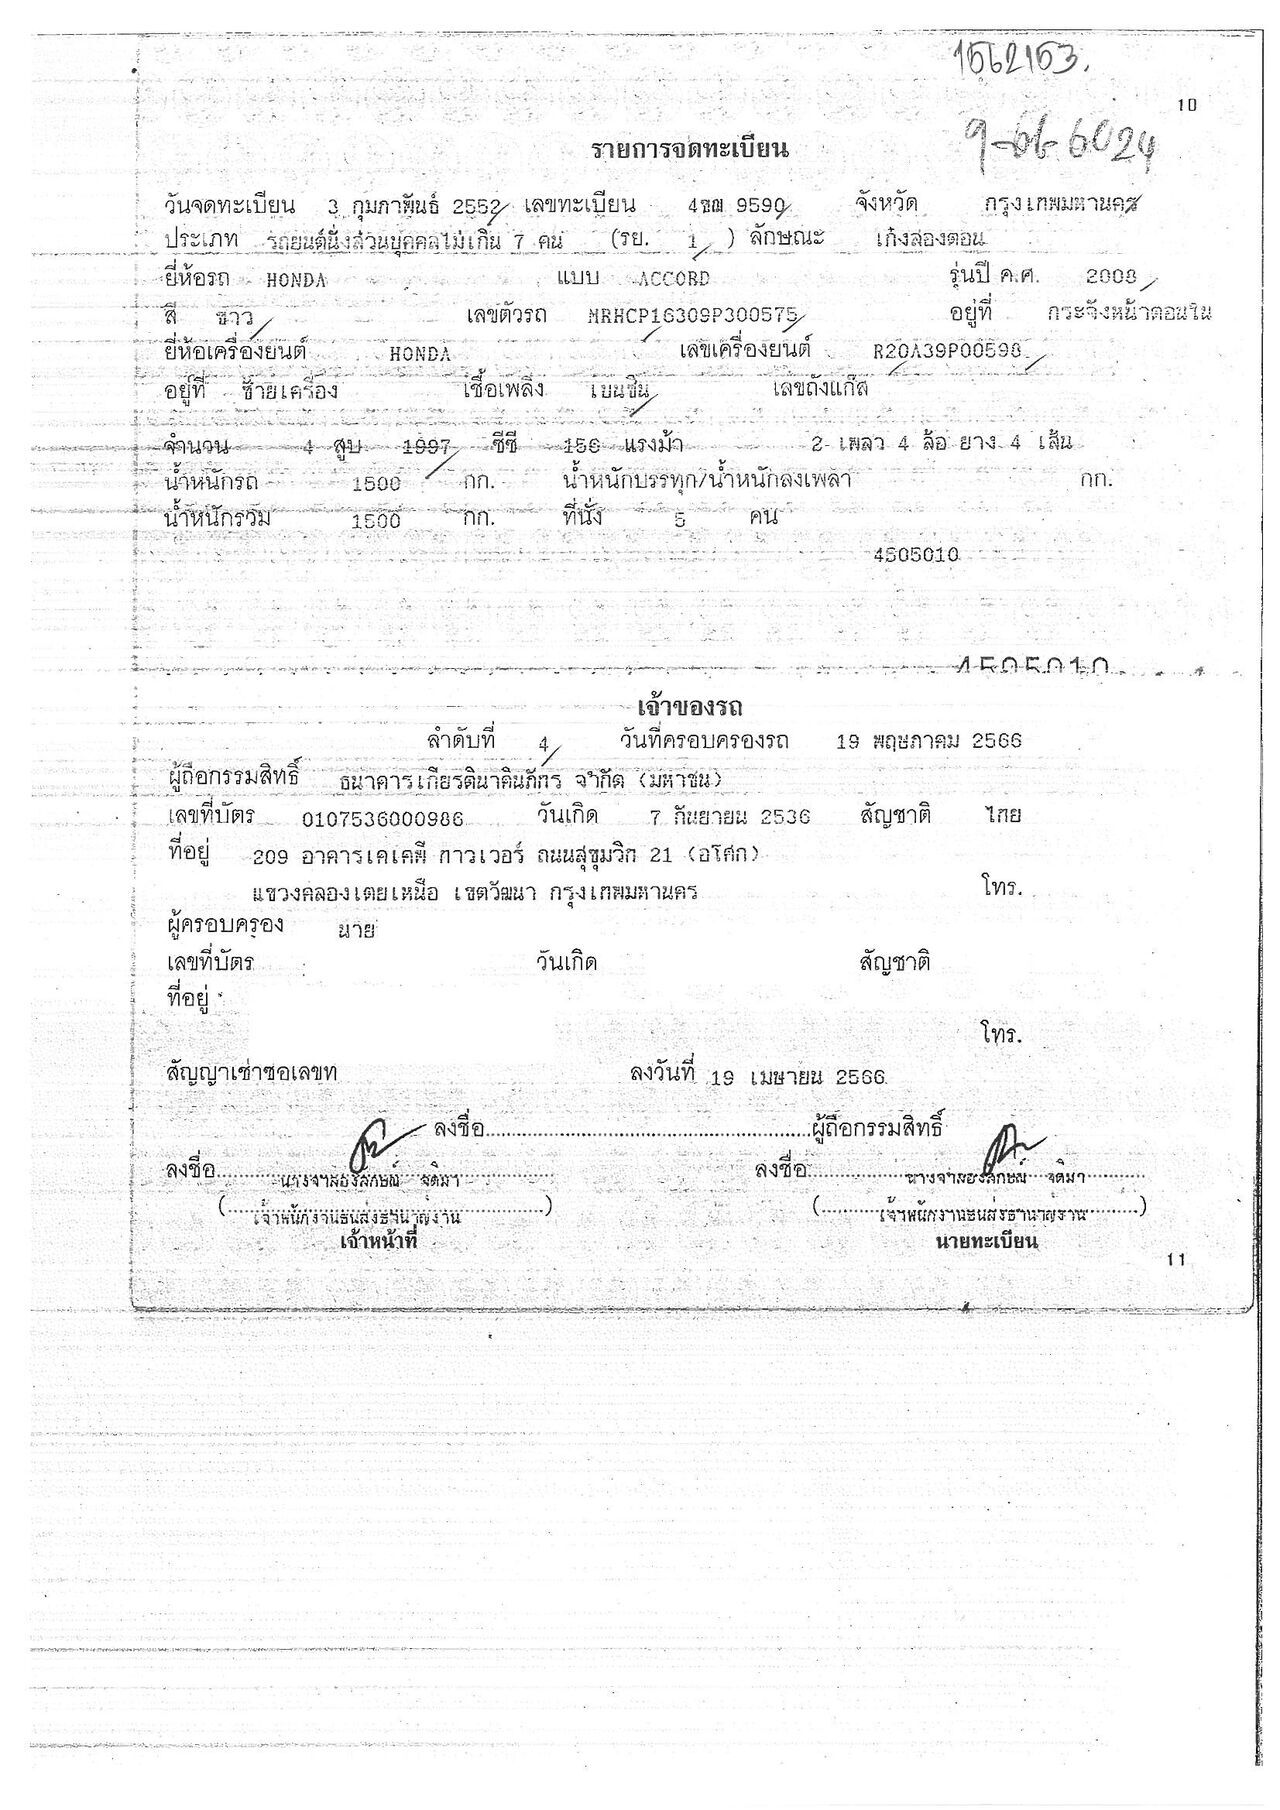 1562153.
10
9-66-6024
รายการจดทะเบียน
วันจดทะเบียน 3 กุมภาพันธ์ 2552 เลขทะเบียน 4ชฌ 9590 จังหวัด กรุงเทพมหานคร
ประเภท รถยนต์นั่งส่วนบุคคลไม่เกิน 7 คน (รย. 1 ) ลักษณะ เก๋งสองตอน
ยี่ห้อรถ HONDA แบบ ACCORD รุ่นปี ค.ศ. 2008
สี ขาว เลขตัวรถ MRHCP16309P300575 อยู่ที่ กระจังหน้าตอนใน
ยี่ห้อเครื่องยนต์ HONDA เลขเครื่องยนต์ R20A39P00598
อยู่ที่ ซ้ายเครื่อง เชื้อเพลิง เบนซิน เลขถังแก๊ส
จำนวน 4 สูบ 1997 ซีซี 156 แรงม้า 2 เพลา 4 ล้อ ยาง 4 เส้น
น้ำหนักรถ 1500 กก. น้ำหนักบรรทุก/น้ำหนักลงเพลา กก.
น้ำหนักรวม 1500 กก. ที่นั่ง 5 คน
4505010
4505010
เจ้าของรถ
ลำดับที่ 4 วันที่ครอบครองรถ 19 พฤษภาคม 2566
ผู้ถือกรรมสิทธิ์ ธนาคารเกียรตินาคินภัทร จำกัด (มหาชน)
เลขที่บัตร 0107536000986 วันเกิด 7 กันยายน 2536 สัญชาติ ไทย
ที่อยู่ 209 อาคารเคเคพี ทาวเวอร์ ถนนสุขุมวิท 21 (อโศก)
แขวงคลองเตยเหนือ เขตวัฒนา กรุงเทพมหานคร โทร.
ผู้ครอบครอง นาย
เลขที่บัตร วันเกิด สัญชาติ
ที่อยู่
โทร.
สัญญาเช่าซื้อเลขที่ ลงวันที่ 19 เมษายน 2566
ลงชื่อ........ผู้ถือกรรมสิทธิ์
ลงชื่อ........ ลงชื่อ........
นางจำลองลักษณ์ จติมา นางจำลองลักษณ์ จติมา
(........) (........)
เจ้าพนักงานขนส่งชำนาญงาน เจ้าพนักงานขนส่งชำนาญงาน
เจ้าหน้าที่ นายทะเบียน
11